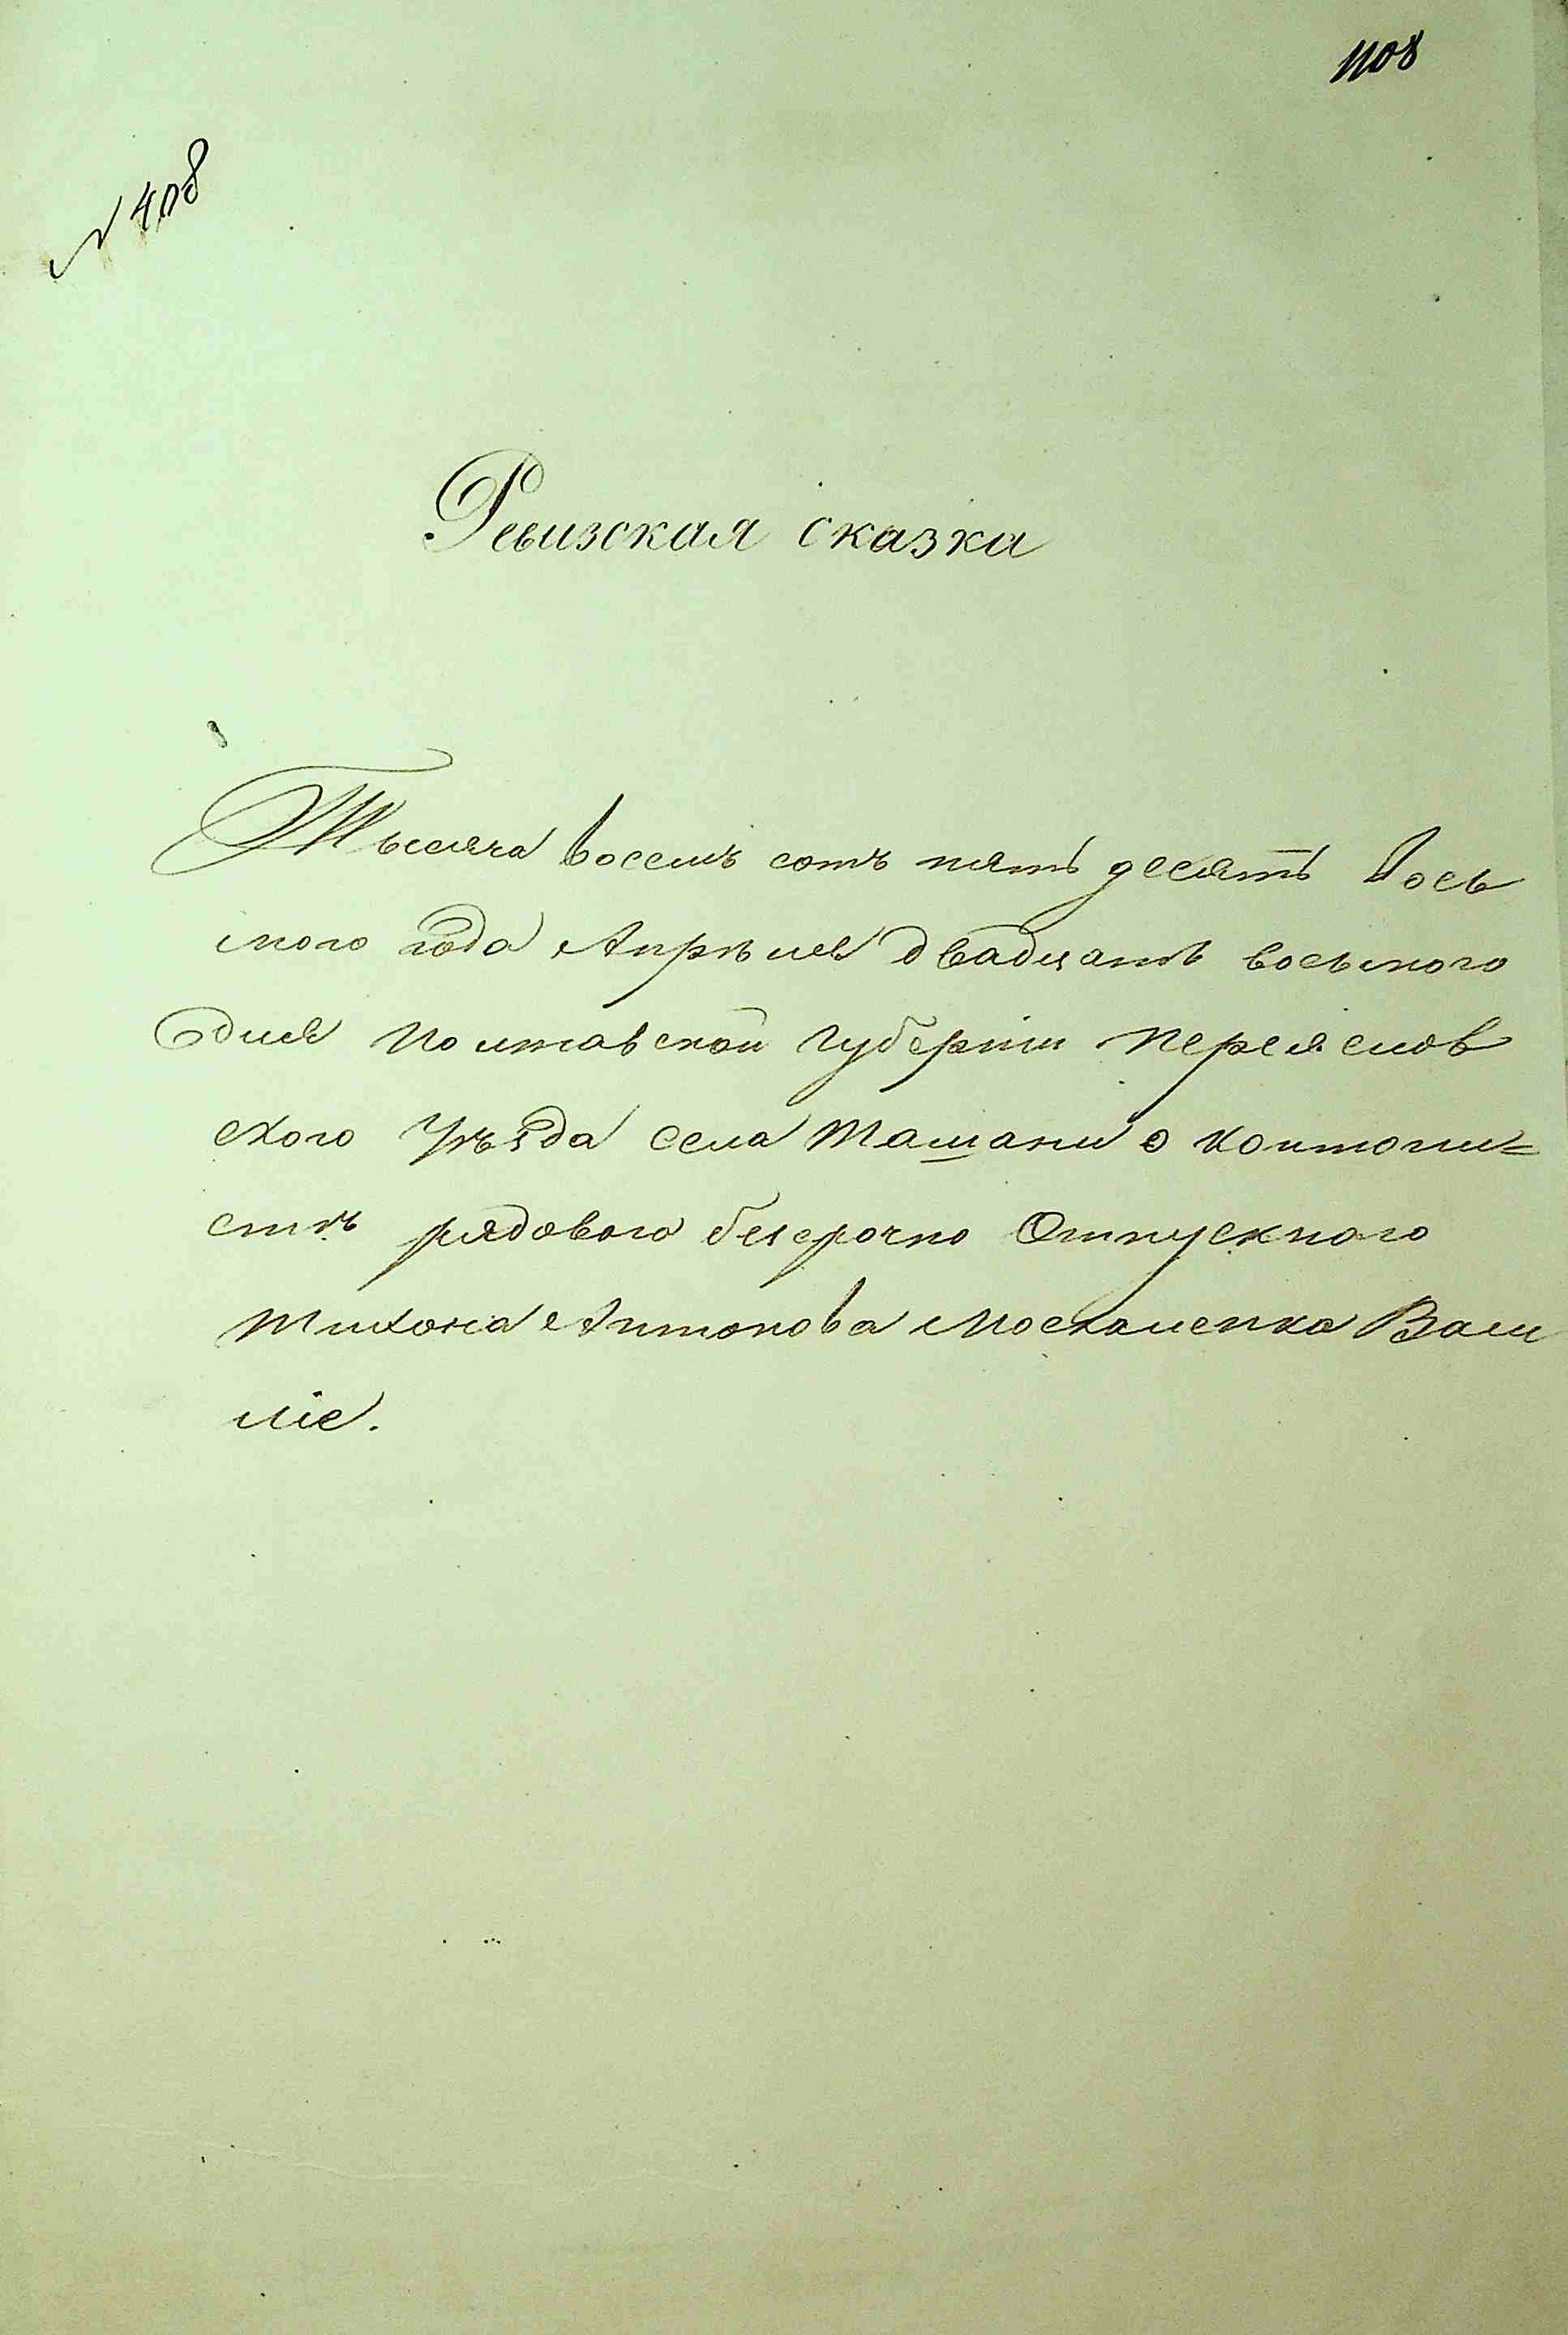 1108
№ 408
Ревизская сказка
Тысяча восемъ сотъ пять десять Вось
мого года Апрѣля двадцать восьмого
дня Полтавской Губерніи Переяслов
ского Уѣзда села Ташани о кантони=
стѣ рядового безсрочно Отпускного
Тихона Антонова Москаленка Васи
ліе.